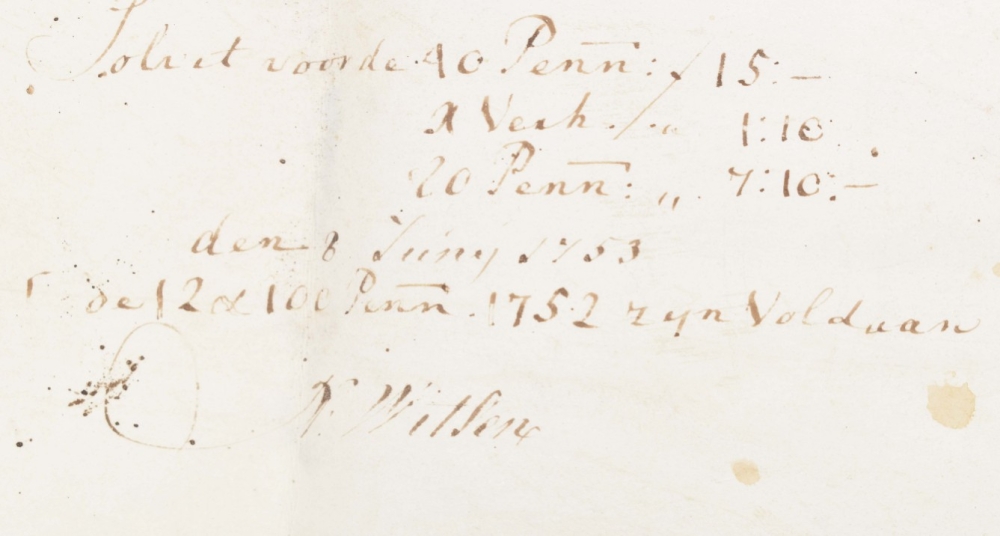 Solvit voorde 40 Penn̄: ƒ 15:–
X Verh. „ 1:10
20 Penn̄: „ 7:10:–
den 8 Juny 1753
de 12 & 100 Penn̄. 1752 zyn Voldaan
N. Witsen